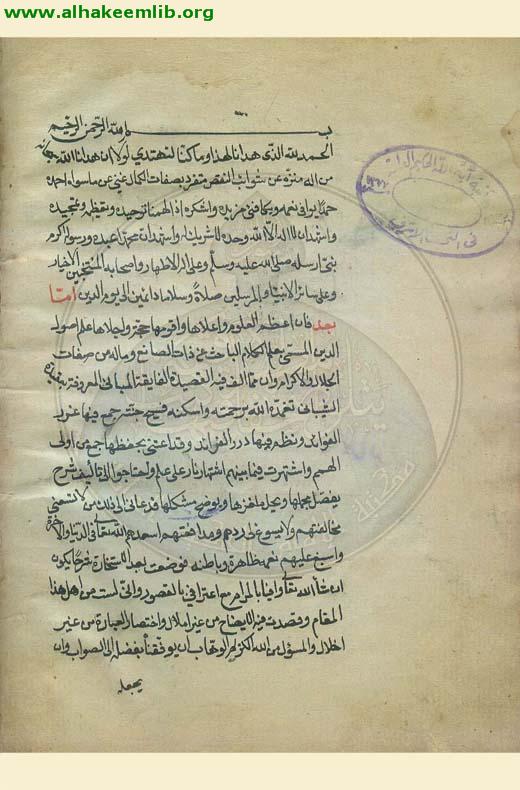 www.alhakeemlib.org
بسم الله الرحمن الرحيم
الحمد لله الذي هدانا لهذا وما كنا لنهتدي لولا ان هدانا الله
من اله منزه عن شوائب النقص متفرد بصفات الكمال غني عن ماسواه احمده
حمدا يوافي نعمه ويكافئ مزيده واشكره اذ الهمنا توحيده وتعظيمه وتمجيده
واشهد ان لا اله الا الله وحده لا شريك له واشهد ان محمدا عبده ورسوله اكرم
نبي ارسله صلى الله عليه وسلم وعلى اله الاطهار واصحابه المنتجبين الاخيار
وعلى سائر الانبياء والمرسلين صلاة وسلاما دائمين الى يوم الدين اما
بعد فان اعظم العلوم واعلاها واقومها حجة واجلاها علم اصول
الدين المسمى بعلم الكلام الباحث عن ذات الصانع وماله من صفات
الجلال والاكرام وان مما الف فيه القصيدة الفايقة المباني المعروفة بعقيدة
الشيباني تغمده الله برحمته واسكنه فسيح جنته جمع فيها غرر
الفوائد ونظم فيها درر الفرائد وقد اعتنى بحفظها جمع من اولي
الهمم واشتهرت فيما بينهم اشتهار نار على علم واحتاجوا الى تاليف شرح
يفصل مجملها ويحل ملغزها ويوضح مشكلها فدعاني الى ذلك من لا تسعني
مخالفتهم ولا يسوغ لي ردهم ومدافعتهم اسعدهم الله تعالى في الدنيا والاخرة
واسبغ عليهم نعمه ظاهرة وباطنة فوضعت بعد الاستخارة شرحا يكون
ان شاء الله تعالى وافيا بالمرام مع اعترافي بالقصور واني لست من اهل هذا
المقام وقصدت فيه الايضاح من غير املال واختصار العبارة من غير
اخلال والمسؤل من الله الكريم الوهاب ان يوفقنا بفضله الى الصواب وان
يجعله